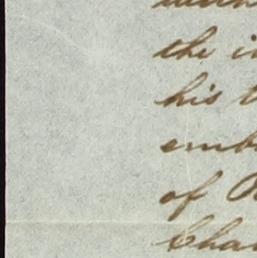 the i
his t
emb
of
Cha